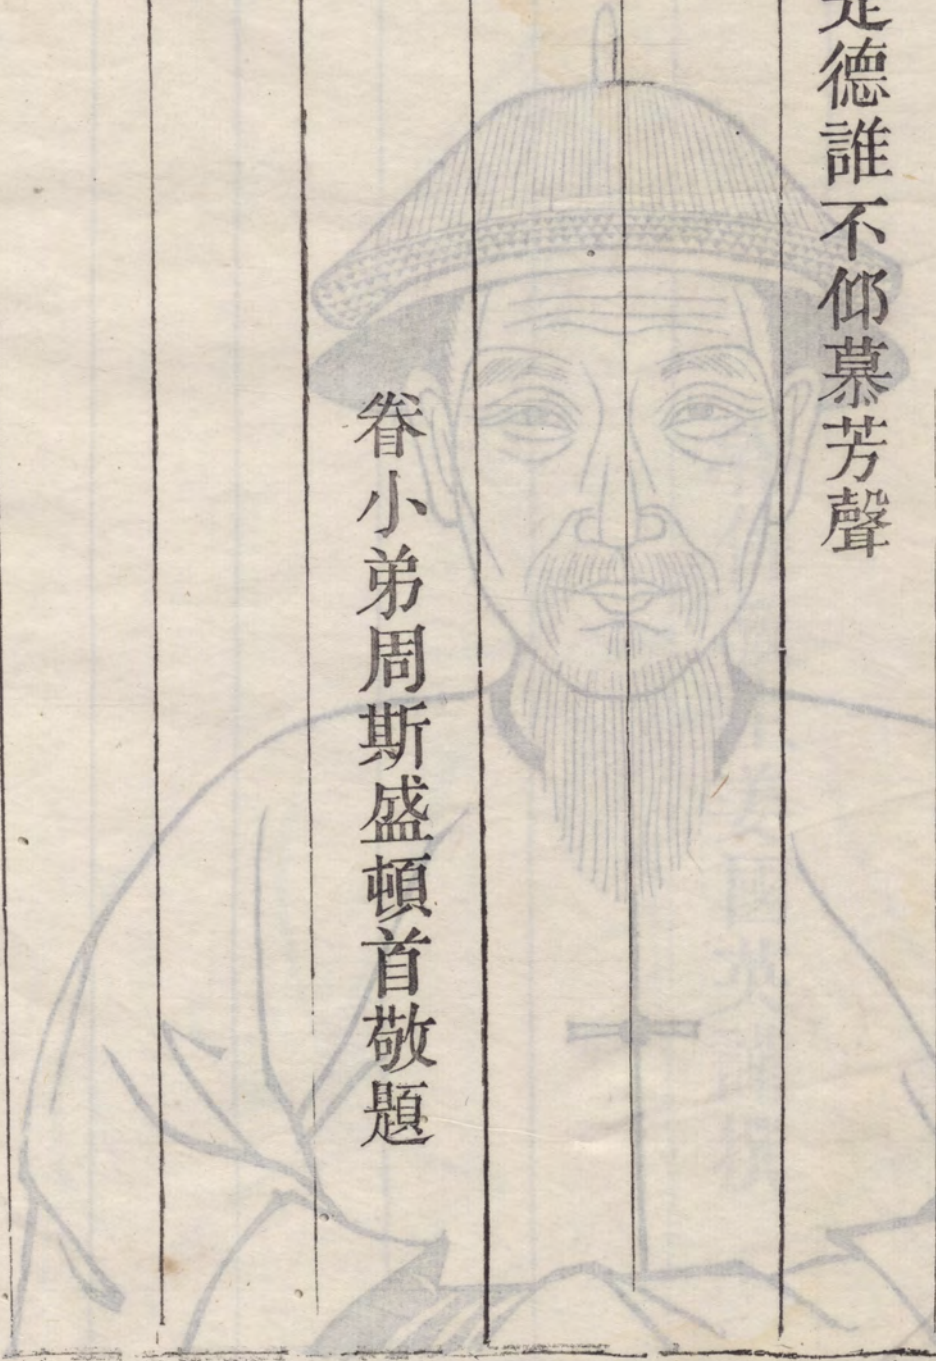 是德誰不仰慕芳聲
眷小弟周斯盛頓首敬題